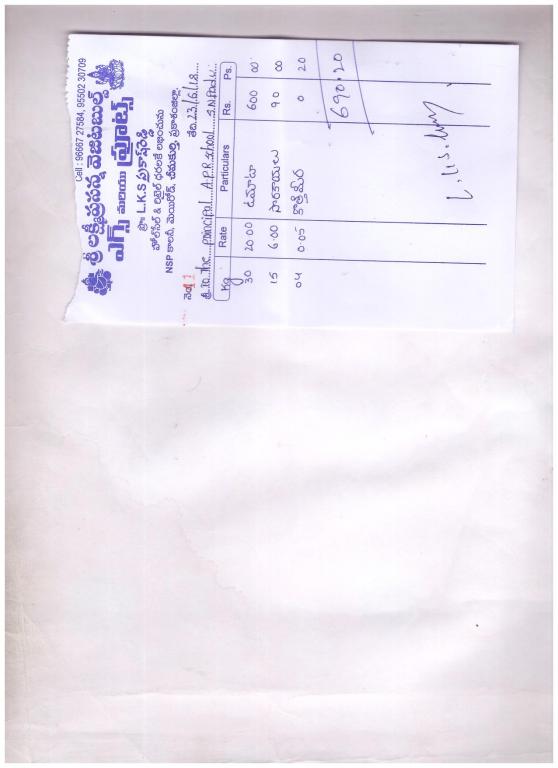 Cell : 96667 27584, 95502 30709
శ్రీ లక్ష్మీప్రసన్న వెజిటబుల్స్
ఎగ్స్ మరియు ఫ్రూట్స్
ప్రొ॥ L.K.S ప్రకాష్‌రెడ్డి
హోల్‌సేల్ & రిటైల్ ధరలకే లభించును
NSP కాలనీ, మెయిన్‌రోడ్, చీమకుర్తి, ప్రకాశంజిల్లా
నెం 11 తేది 23/6/18
The principal A.P.R. school S.N.Padu
Kg Rate Particulars Rs. Ps.
30 20.00 టమాటా 600 00
15 6.00 సొరకాయలు 90 00
04 0.05 కొత్తిమీర 0 20
690.20